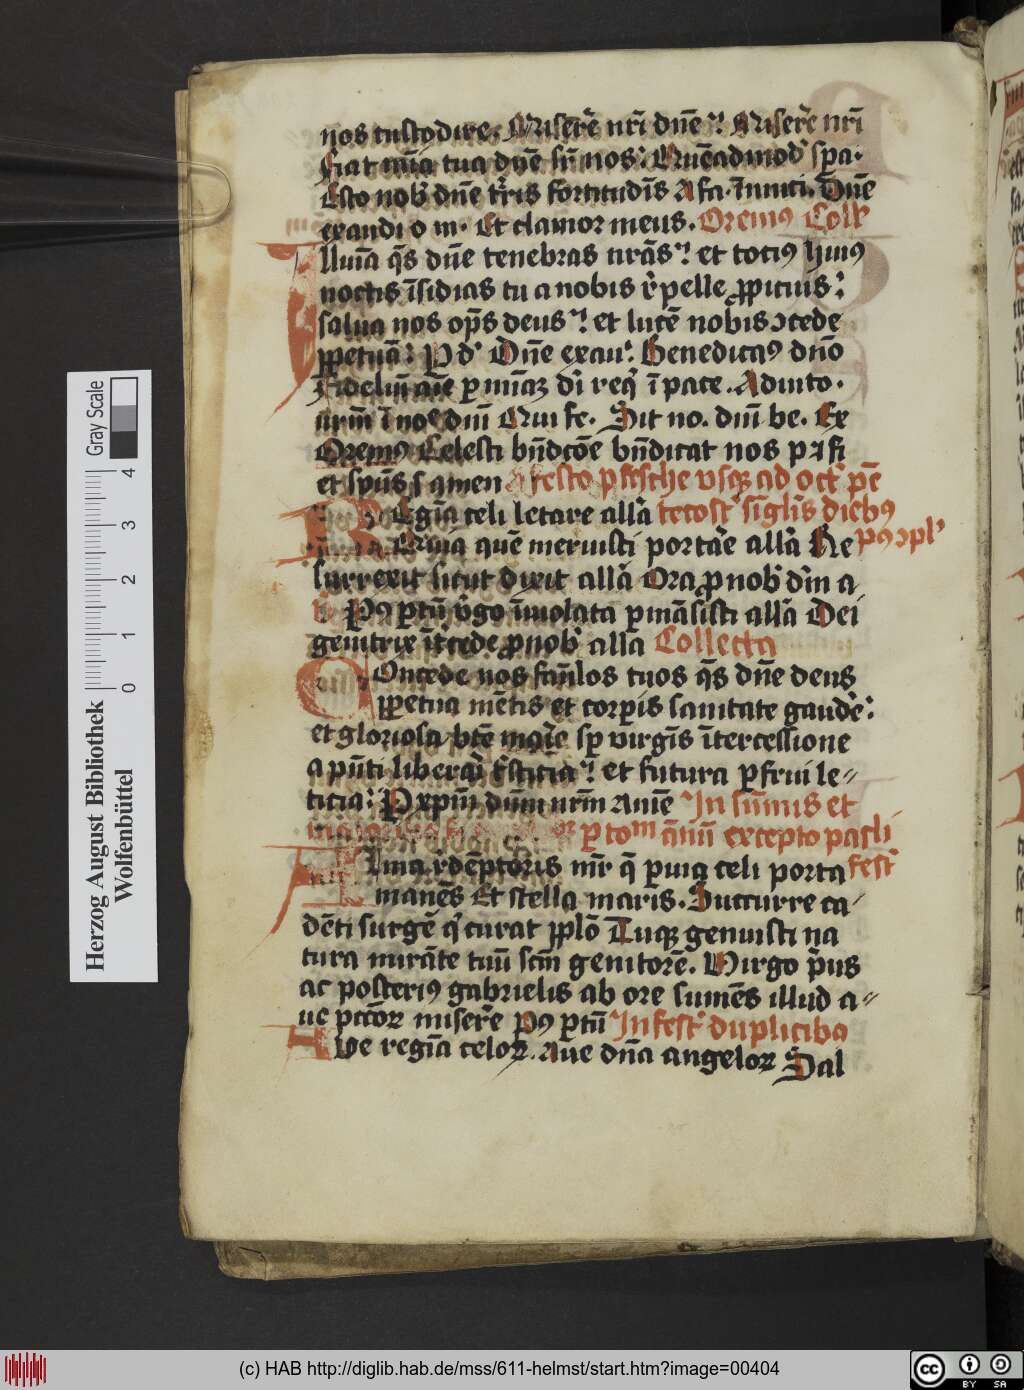 nos custodire. Miserē nr̄i dn̄e Miserē nr̄i
fiat mīa tua dn̄e sr̄ nos: Quēadmod spa.
Esto nob dn̄e tr̄ris fortitudīs A fa. Inimici. Dn̄e
exaudi o m. Et clamor meus. Oremꝰ Coll
llumīa q̄s dn̄e tenebras nr̄as et totiꝰ huiꝰ
noctis īsidias tu a nobis r̄pelle ꝓpicius:
salua nos op̄s deus et lucē nobis ↄcede
ꝑpetuā: P d Dn̄e exau. Benedicaꝰ dn̄o
Fideliū aīe p mīaꝫ dī req ī pace. Adiuto.
nr̄m ī noē dn̄i Qui fe. Sit no. dn̄i be. Ex
Oremꝰ Celesti bn̄dcōe bn̄dicat nos p ⁊ fi
et sp̄us s amen A festo pasche vsqꝫ ad oct pē
Regīa celi letare allā tecost sīglīs diebꝰ
Quia quē meruisti portare allā Re pꝰ ↄpl
surrexit sicut dixit allā Ora ꝓ nob dm̄ a
Pꝰ ptū v̄go īuiolata pmāsisti allā Dei
genitrix ītcede ꝓ nob allā Collecta
Oncede nos famlos tuos q̄s dn̄e deus
ꝑpetua mētis et corpis sanitate gaudē:
et gloriosa btē marīe sp virgīs ītercessione
a pn̄ti liberari tsticia et futura pfrui le-
ticia: P xpm̄ dn̄m nr̄m Amē In sūmis et
p tom ānū excepto pasli
Alma r̄dēptoris mr̄ q̄ puia celi porta fest
manēs Et stella maris. Succurre ca
dēti surgē q curat pplō Tu qꝫ genuisti na
tura mirāte tuū scm̄ genitorē. Virgo p̄us
ac posteriꝰ gabrielis ab ore sumēs illud a-
ue pctōꝝ miserē Pꝰ ptū In fest duplicibꝫ
Aue regīa celoꝝ. Aue dn̄a angeloꝝ Sal
Gray Scale
0 1 2 3 4
Herzog August Bibliothek
Wolfenbüttel
(c) HAB http://diglib.hab.de/mss/611-helmst/start.htm?image=00404
cc BY SA